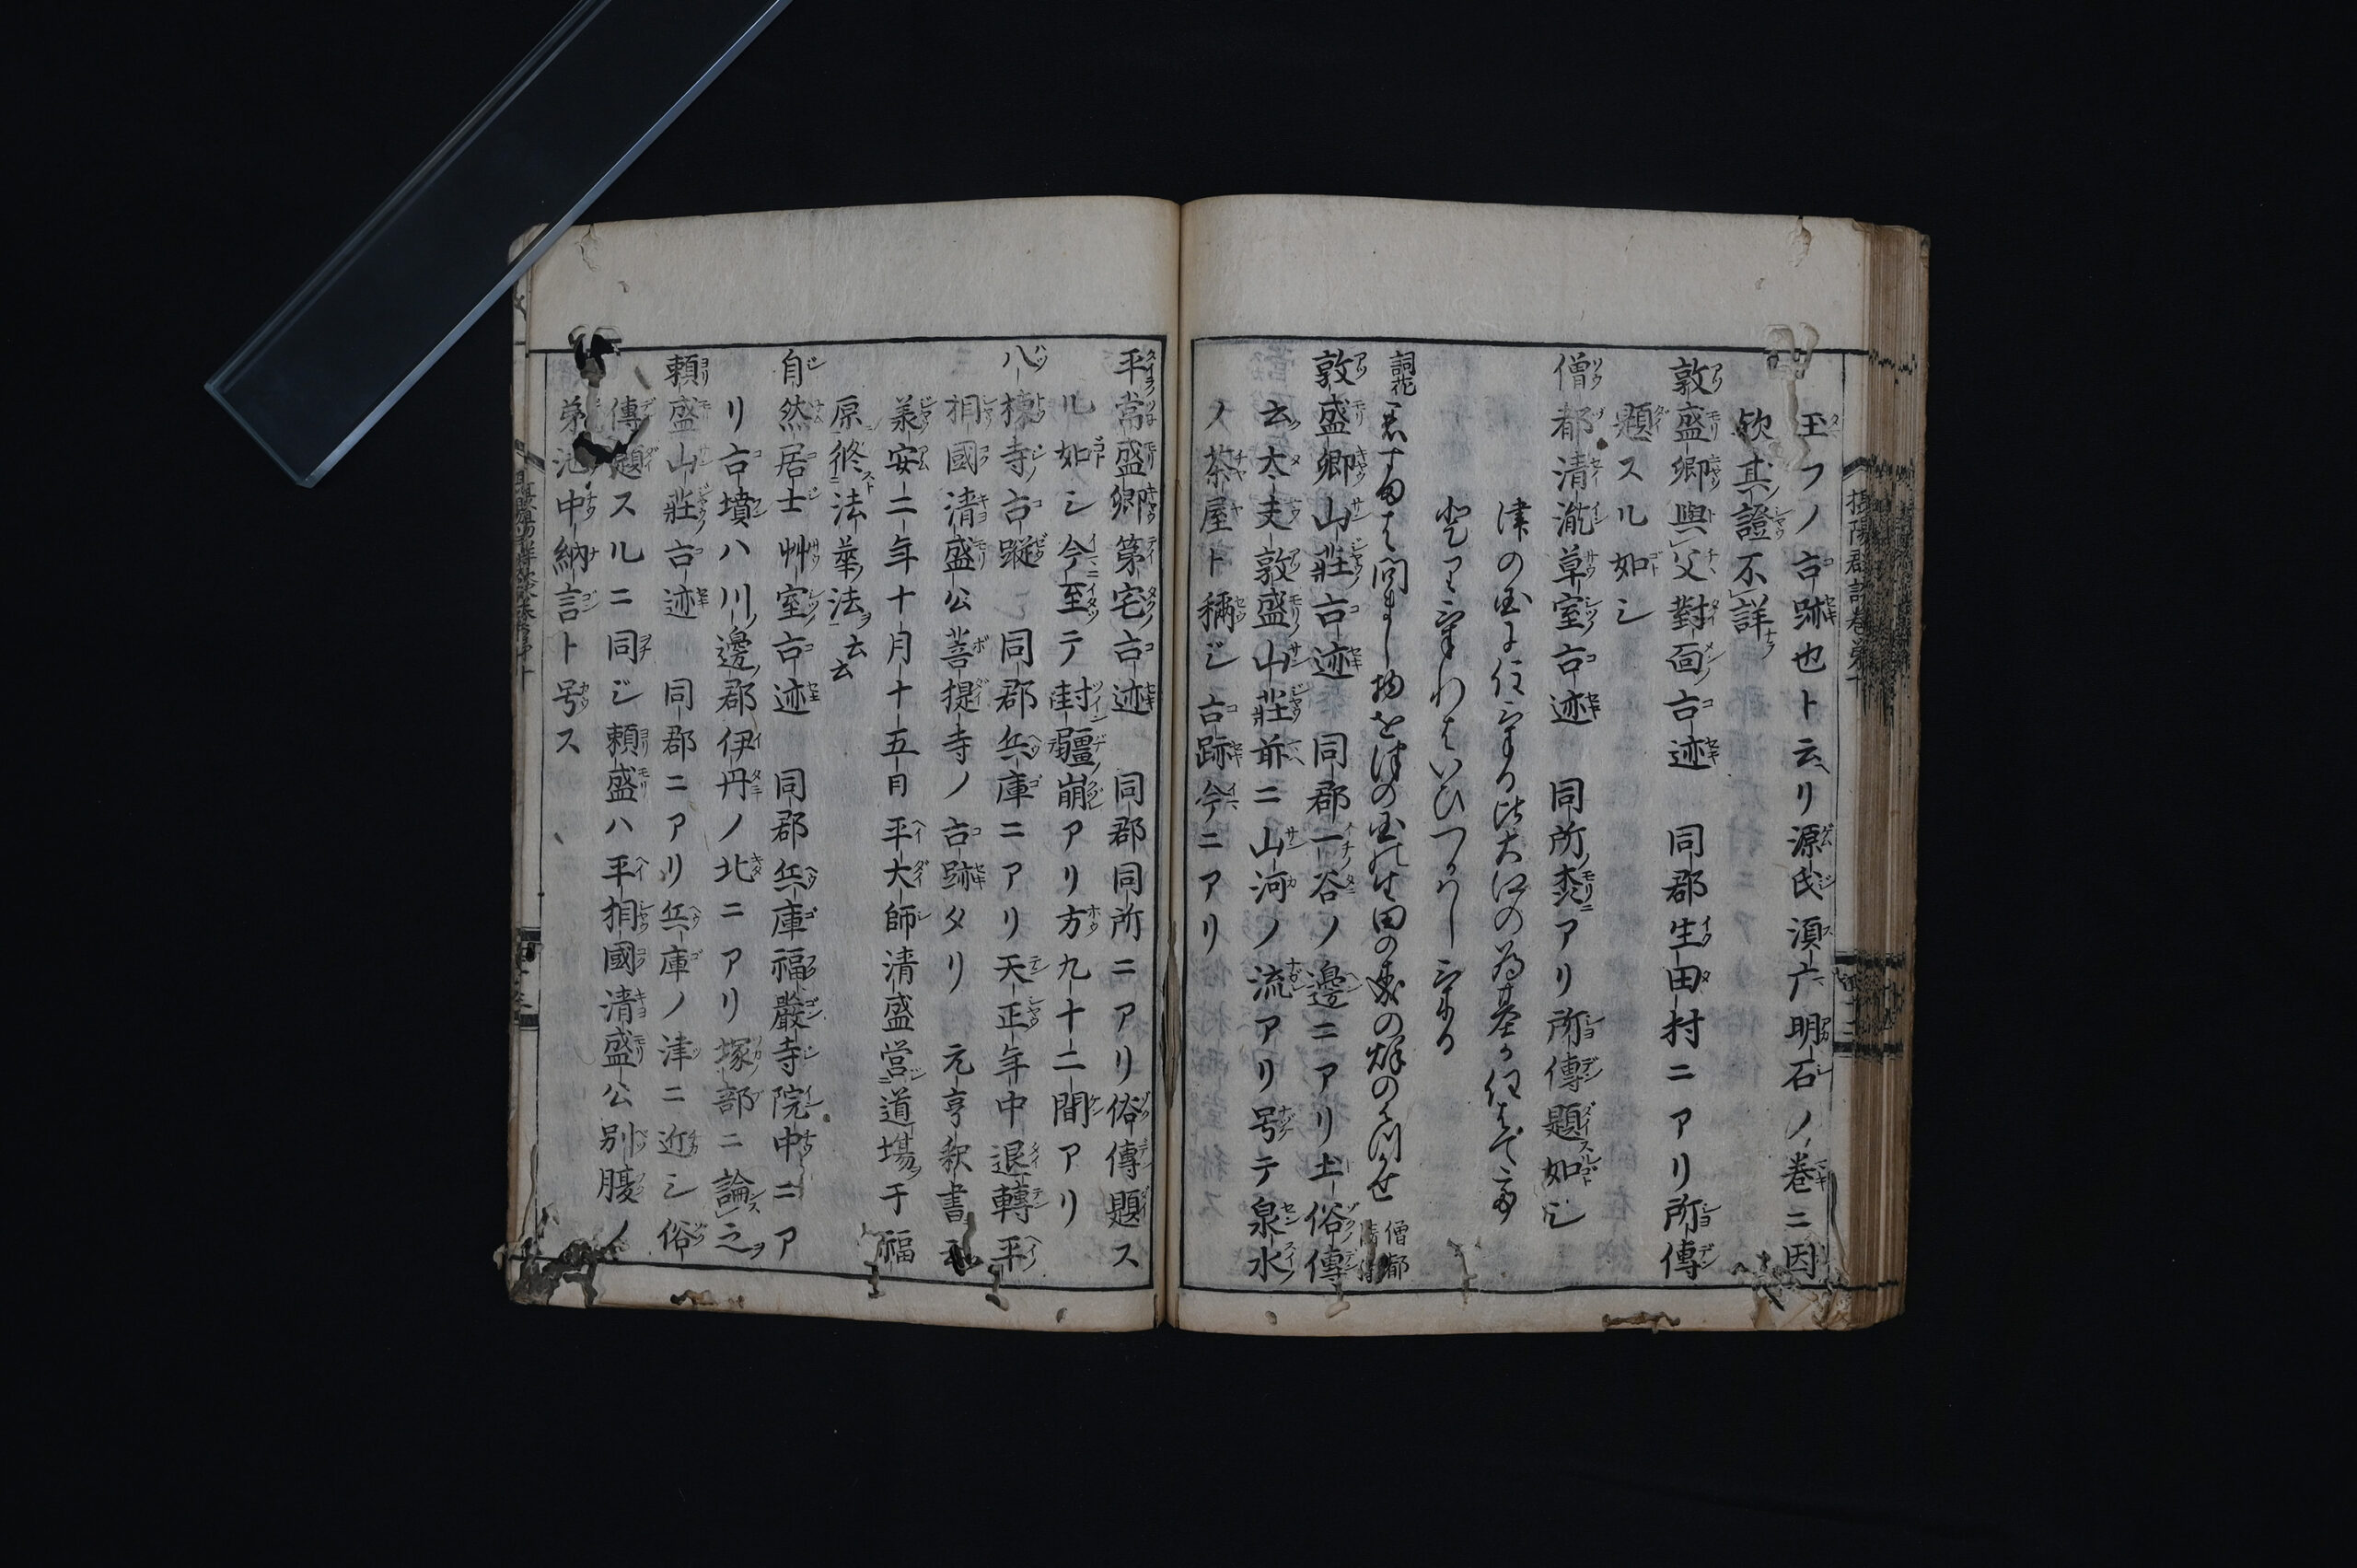 玉フノ古跡也ト云リ源氏須广明石ノ巻ニ因
欤其證不詳
敦盛卿與父對面古迹　同郡生田村ニアリ所傳
題スル如シ
僧都清㣧草室古迹　同所杜ニアリ所傳題如シ
津の国に住ける比大江の為基
登りけれはいひつかはしける
詞花　君すまは問まし物を津の国の生田の杜の秋のはつかせ　僧都
敦盛卿山荘古迹　同郡一谷ノ邊ニアリ土俗傳
云大夫敦盛山荘前ニ山河ノ流アリ号テ泉水
ノ茶屋ト稱ジ古跡今ニアリ
平常盛卿第宅古迹　同郡同所ニアリ俗傳題ス
ル如シ今至テ封疆崩アリ方九十二間アリ
八棟寺古蹤　同郡兵庫ニアリ天正年中退轉平
相國清盛公菩提寺ノ古跡タリ　元亨釈書
羕安二年十月十五日平大師清盛営道場于福
原修法華法云云
自然居士艸室古迹　同郡兵庫福嚴寺院中ニア
リ古墳ハ川邊郡伊丹ノ北ニアリ塚部ニ論之
頼盛山莊古迹　同郡ニアリ兵庫ノ津ニ近シ俗
傳題スルニ同ジ頼盛ハ平相國清盛公別腹ノ
弟池中納言ト号ス
摂陽群談巻第十